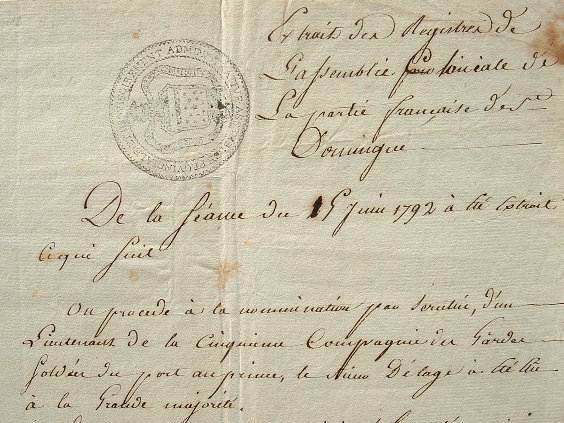 Extrait des Registres de
L'assemblée Coloniale de
La partie française de St
Domingue
De la Séance du 15 Juin 1792 à été Extrait
ce qui suit
On procede à la nomination par scrutin, d'un
Lieutenant de la Cinquieme Compagnie des Gardes
Soldés du port au prince, le Sieur Délage a été élu
à la Grande majorité.